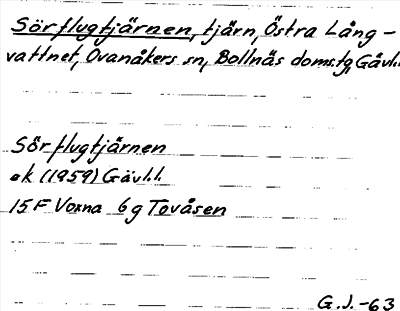 Sörflugtjärnen, tjärn, Östra Lång-
vattnet, Ovanåkers sn, Bollnäs doms.tg, Gävl.l.
Sörflugtjärnen
ek (1959) Gävl.l.
15F Voxna 6g Tovåsen
G.J.-63